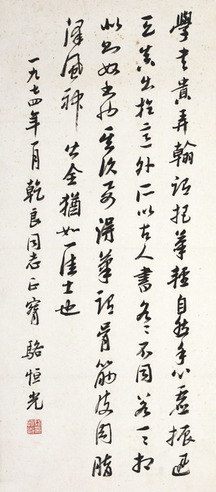 學書貴弄翰謂把筆輕自然手心虛振迅
天真出於意外所以古人書各各不同若一一相
似則奴書也其次要得筆謂骨筋皮肉脂
澤風神皆全猶如一佳士也
一九七四年一月乾良同志正 駱恒光